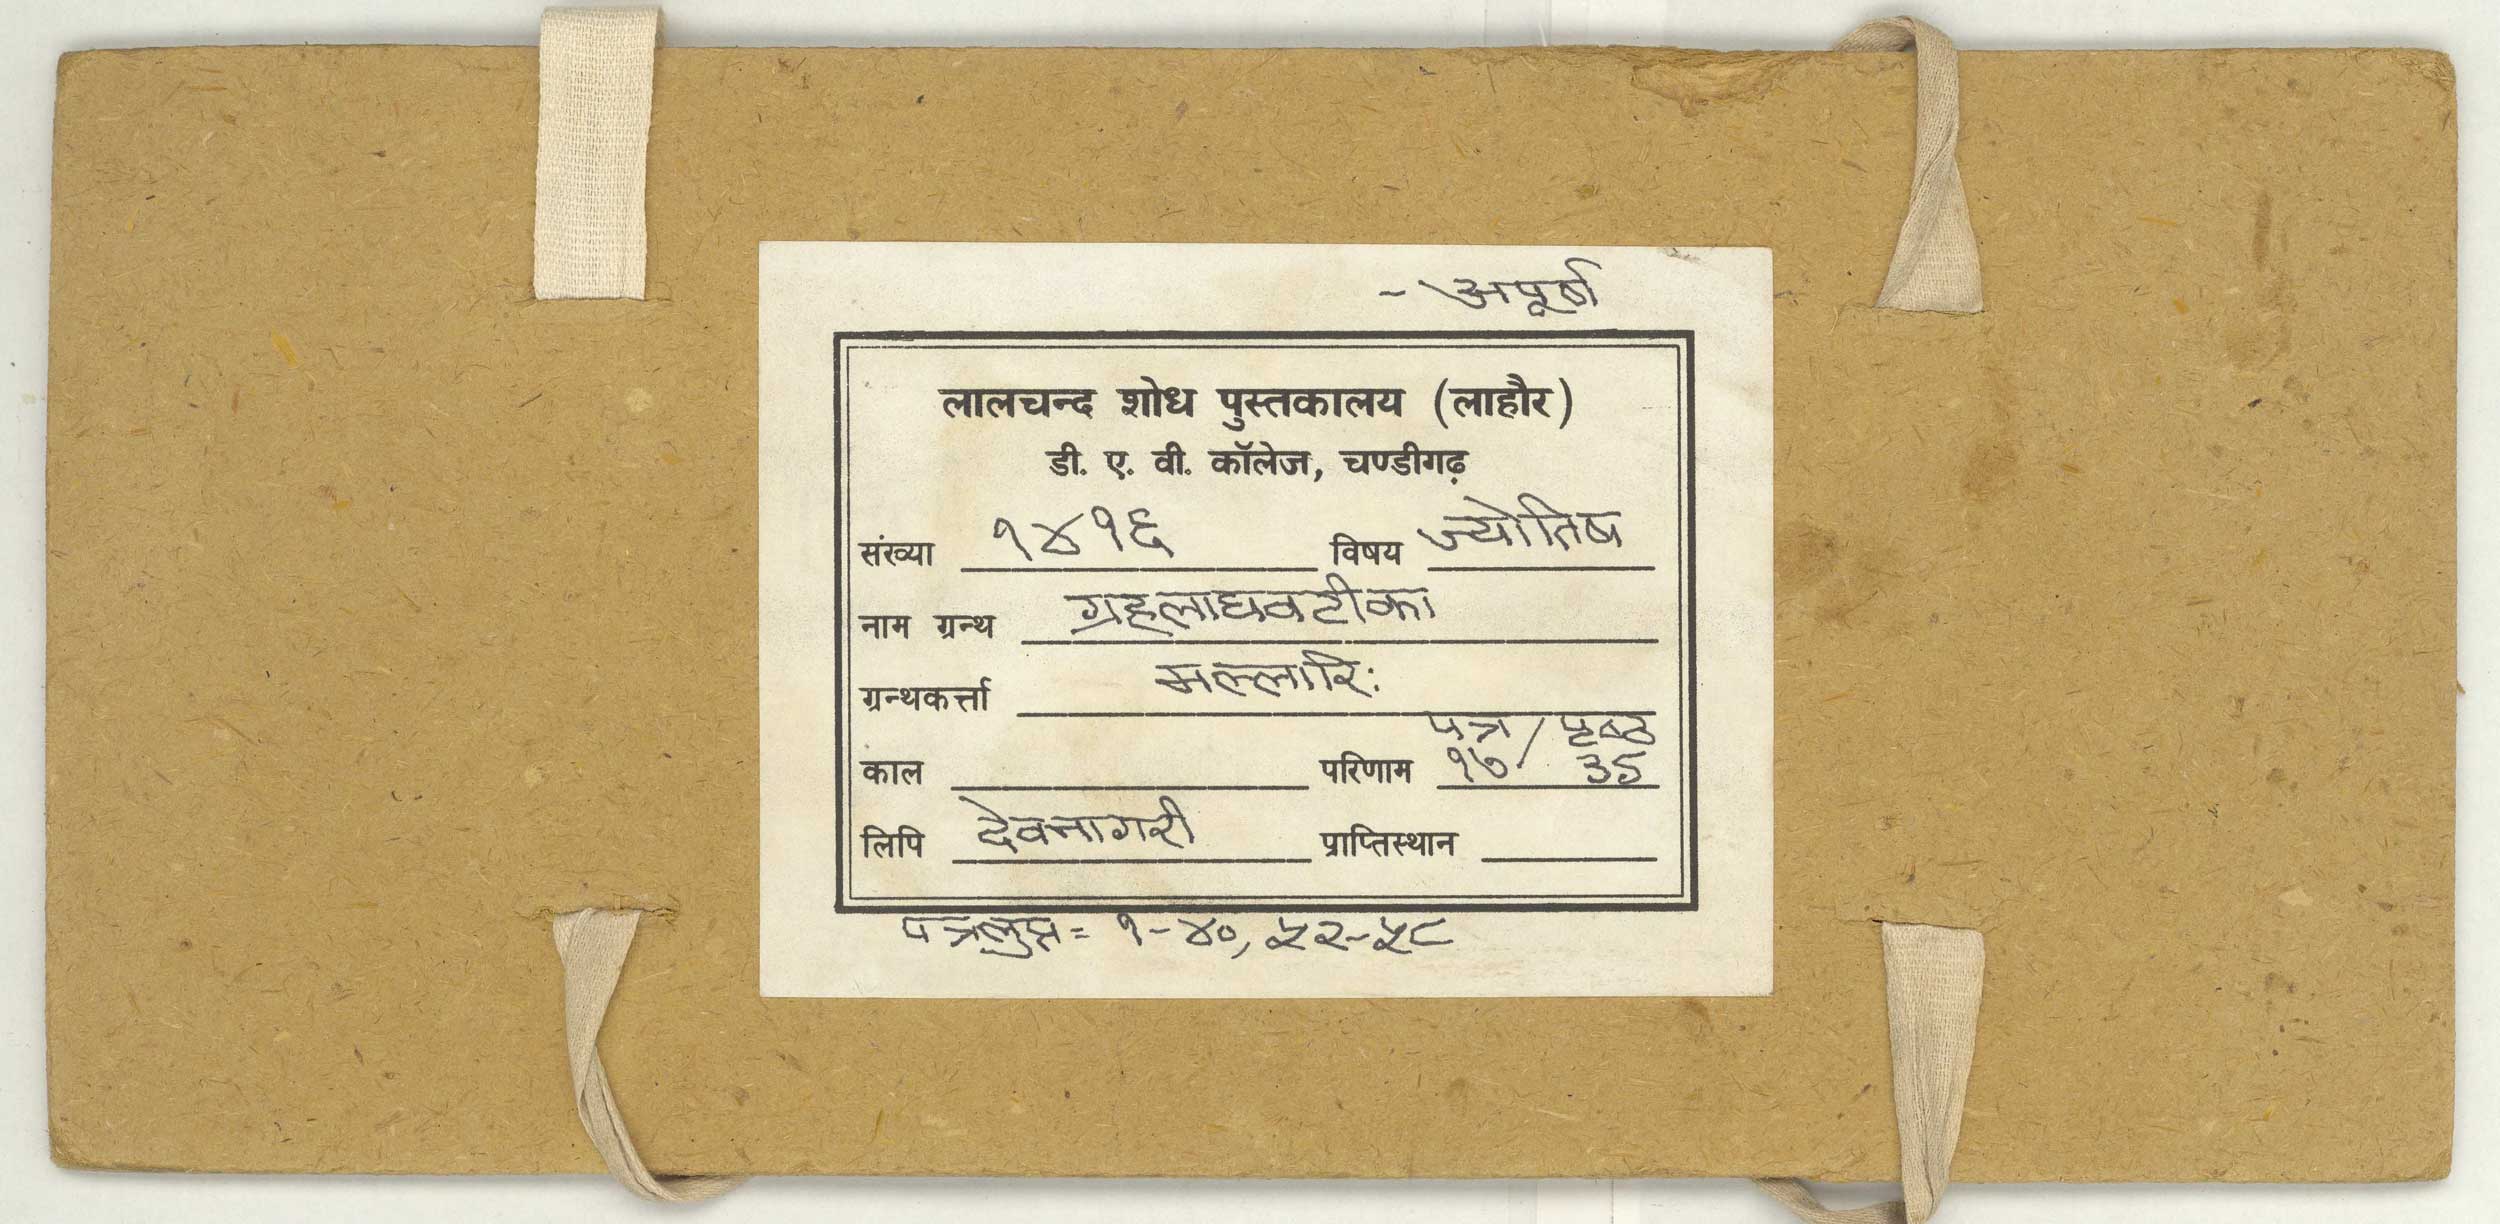 - अपूर्ण
लालचन्द शोध पुस्तकालय (लाहौर)
डी. ए. वी. कॉलेज, चण्डीगढ़
संख्या १४१६ विषय ज्योतिष
नाम ग्रन्थ ग्रहलाघवटीका
ग्रन्थकर्त्ता मल्लारिः
पत्र / पृष्ठ
काल परिणाम १७ / 35
लिपि देवनागरी प्राप्तिस्थान
पत्रलुप्त = १-४०, ५२-५८